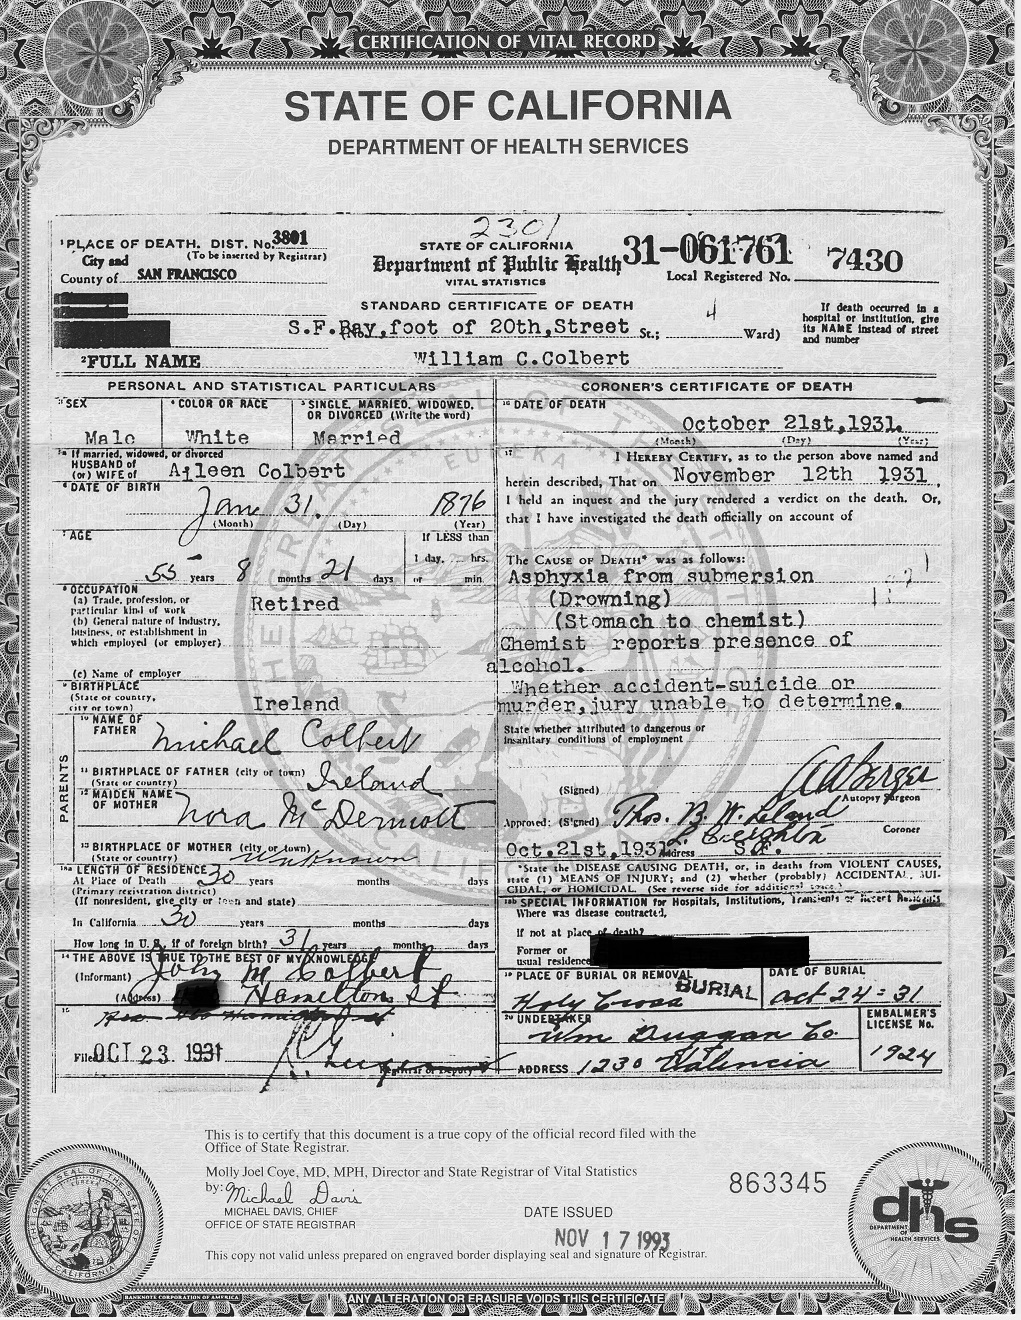 CERTIFICATION OF VITAL RECORD
STATE OF CALIFORNIA
DEPARTMENT OF HEALTH SERVICES
2301
¹PLACE OF DEATH. DIST. No. 3801
(To be inserted by Registrar)
City and
County of SAN FRANCISCO
STATE OF CALIFORNIA
Department of Public Health
VITAL STATISTICS
STANDARD CERTIFICATE OF DEATH
31-061761
Local Registered No. 7430
S.F.Bay, foot of 20th, Street St.; 4 Ward)
If death occurred in a
hospital or institution, give
its NAME instead of street
and number
²FULL NAME William C. Colbert
PERSONAL AND STATISTICAL PARTICULARS
³SEX
Male
⁴COLOR OR RACE
White
⁵SINGLE, MARRIED, WIDOWED,
OR DIVORCED (Write the word)
Married
⁵ᵃ If married, widowed, or divorced
HUSBAND of
(or) WIFE of Aileen Colbert
⁶DATE OF BIRTH
Jan 31. 1876
(Month) (Day) (Year)
⁷AGE
55 years 8 months 21 days
If LESS than
1 day, hrs.
or min.
⁸OCCUPATION
(a) Trade, profession, or
particular kind of work Retired
(b) General nature of Industry,
business, or establishment in
which employed (or employer)
(c) Name of employer
⁹BIRTHPLACE
(State or country,
city or town) Ireland
PARENTS
¹⁰NAME OF
FATHER Michael Colbert
¹¹BIRTHPLACE OF FATHER (city or town)
(State or country) Ireland
¹²MAIDEN NAME
OF MOTHER Nora McDermott
¹³BIRTHPLACE OF MOTHER (city or town)
(State or country) Unknown
¹³ᵃ LENGTH OF RESIDENCE
At Place of Death 30 years months days
(Primary registration district)
(If nonresident, give city or town and state)
In California 30 years months days
How long in U. S., if of foreign birth? 31 years months days
¹⁴THE ABOVE IS TRUE TO THE BEST OF MY KNOWLEDGE
(Informant) John M Colbert
(Address) Hamilton St
¹⁵
Filed OCT 23 1931
Registrar or Deputy
CORONER'S CERTIFICATE OF DEATH
¹⁶DATE OF DEATH
October 21st, 1931.
(Month) (Day) (Year)
¹⁷ I HEREBY CERTIFY, as to the person above named and
herein described, That on November 12th 1931
I held an inquest and the jury rendered a verdict on the death. Or,
that I have investigated the death officially on account of
The CAUSE OF DEATH* was as follows:
Asphyxia from submersion
(Drowning)
(Stomach to chemist)
Chemist reports presence of
alcohol.
Whether accident-suicide or
murder, jury unable to determine.
State whether attributed to dangerous or
insanitary conditions of employment
(Signed) A A Berger
Autopsy Surgeon
Approved: (Signed) Thos. B. W. Leland
Coroner
Oct. 21st, 1931 Address S.F.
*State the DISEASE CAUSING DEATH, or, in deaths from VIOLENT CAUSES,
state (1) MEANS OF INJURY; and (2) whether (probably) ACCIDENTAL, SUI-
CIDAL, or HOMICIDAL. (See reverse side for additional space.)
¹⁸ᵇ SPECIAL INFORMATION for Hospitals, Institutions, Transients or Recent Residents
Where was disease contracted,
If not at place of death?
Former or
usual residence
¹⁹PLACE OF BURIAL OR REMOVAL
Holy Cross BURIAL
DATE OF BURIAL
Oct 24 = 31
²⁰UNDERTAKER
Wm Duggan Co
ADDRESS 1230 Valencia
EMBALMER'S
LICENSE No.
1924
This is to certify that this document is a true copy of the official record filed with the
Office of State Registrar.
Molly Joel Coye, MD, MPH, Director and State Registrar of Vital Statistics
by: Michael Davis
MICHAEL DAVIS, CHIEF
OFFICE OF STATE REGISTRAR
863345
DATE ISSUED
NOV 17 1993
This copy not valid unless prepared on engraved border displaying seal and signature of Registrar.
dhs
DEPARTMENT OF HEALTH SERVICES
THE GREAT SEAL OF THE STATE OF CALIFORNIA
EUREKA
BANKNOTE CORPORATION OF AMERICA
ANY ALTERATION OR ERASURE VOIDS THIS CERTIFICATE